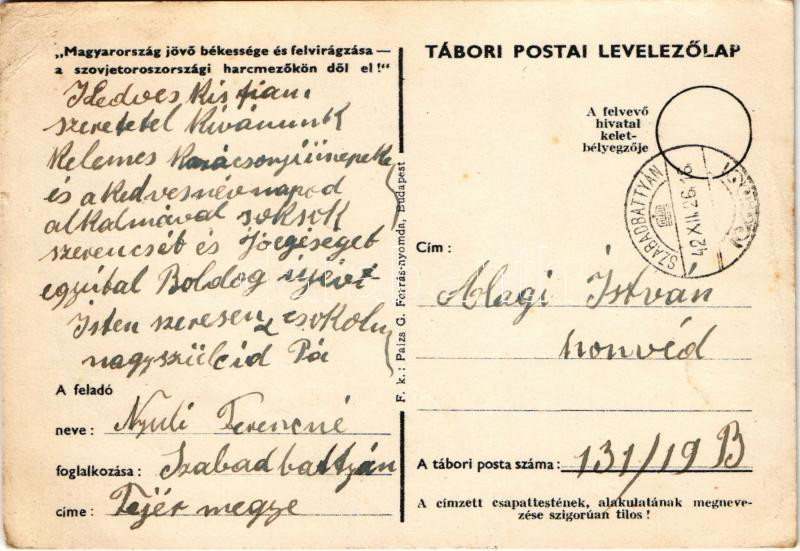 „Magyarország jövő békessége és felvirágzása —
a szovjetoroszországi harcmezőkön dől el!"
Kedves Kis fiam
szeretetel Kivánunk
Kelemes Karácsonyiünnepeke
és a Kedvesnévnapod
alkalmával soksok
szerencsét és Jóegéséget
egyútal Boldog újévet
Isten szeresen csokolu
nagyszüleid Pá
A feladó
neve: Nyuli Ferencné
foglalkozása: Szabadbattyán
címe: Fejér megye
F. k.: Paizs G. Forrás-nyomda, Budapest
TÁBORI POSTAI LEVELEZŐLAP
A felvevő
hivatal
kelet-
bélyegzője
SZABADBATTYÁN
42 XII. 26. 16
Cím:
Alagi István
honvéd
A tábori posta száma: 131/19 B
A címzett csapattestének, alakulatának megneve-
zése szigorúan tilos!